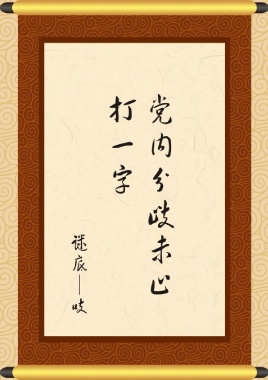 党内分歧未止
打一字
谜底——吱